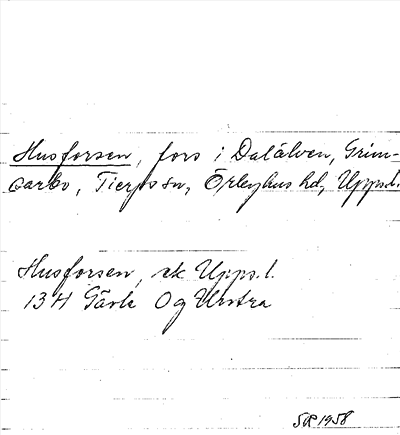 Husforsen, fors i Dalälven, Grim-
sarbo, Tierps sn, Örbyhus hd, Uppsl.
Husforsen, ek Upps. l.
13 H Gävle Og Untra
SR 1958